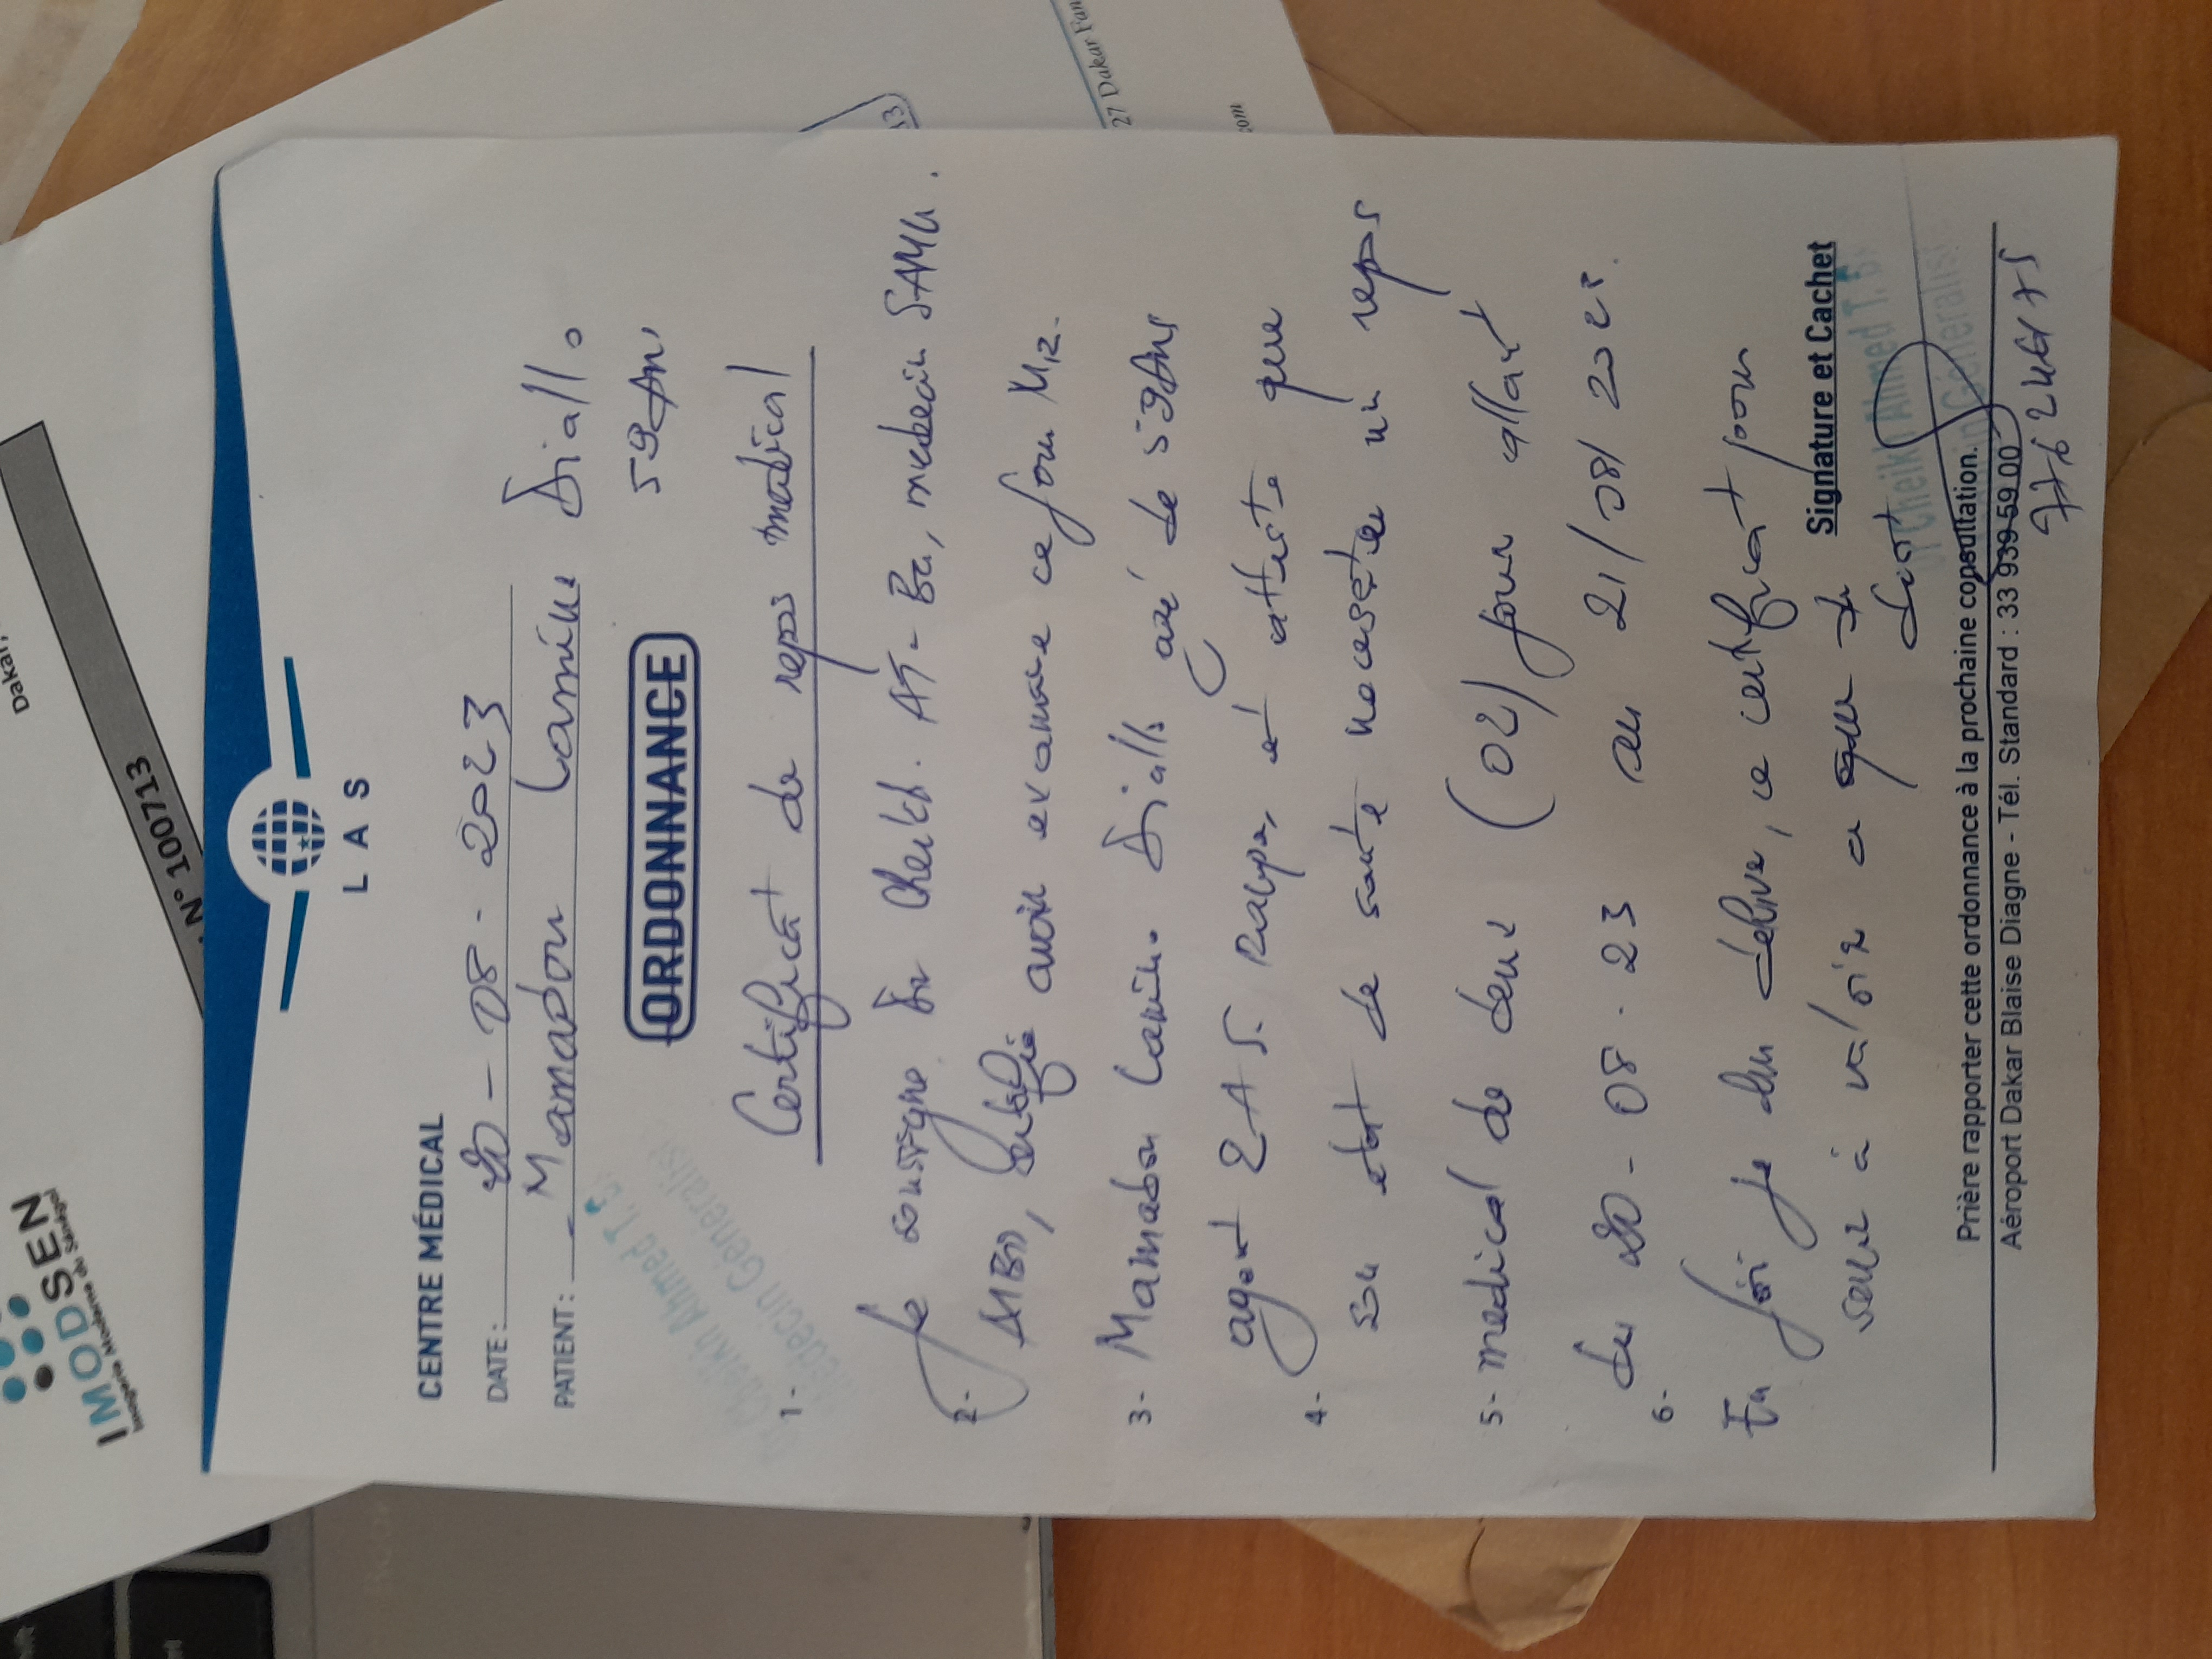 IMODSEN
Imagerie Moderne du Sénégal
Dakar,
N° 100713
27 Dakar Fan
com
LAS
CENTRE MÉDICAL
DATE: 20-08-2023
PATIENT: Mamadou Lamine Diallo
59 Ans
ORDONNANCE
Dr Cheikh Ahmed T.
Médecin Généraliste
1- Certificat de repos medical
Je soussigne Dr Cheikh. AT-Ba, medecin SAMU.
2-
avoir examine ce jour Mr
3- Mamadou Lamine Diallo agé de 59 Ans
agent LAS. et atteste que
4-
son etat de sante necessite un repos
5- medical de deux (02) jour allant
du 20-08-23 au 21/08/2023.
6-
En foi je lui delivre, ce certificat pour
servir à valoir a que de
droit
Signature et Cachet
Dr Cheikh Ahmed T. B
Médecin Généraliste
Prière rapporter cette ordonnance à la prochaine consultation.
Aéroport Dakar Blaise Diagne - Tél. Standard : 33 939 59 00